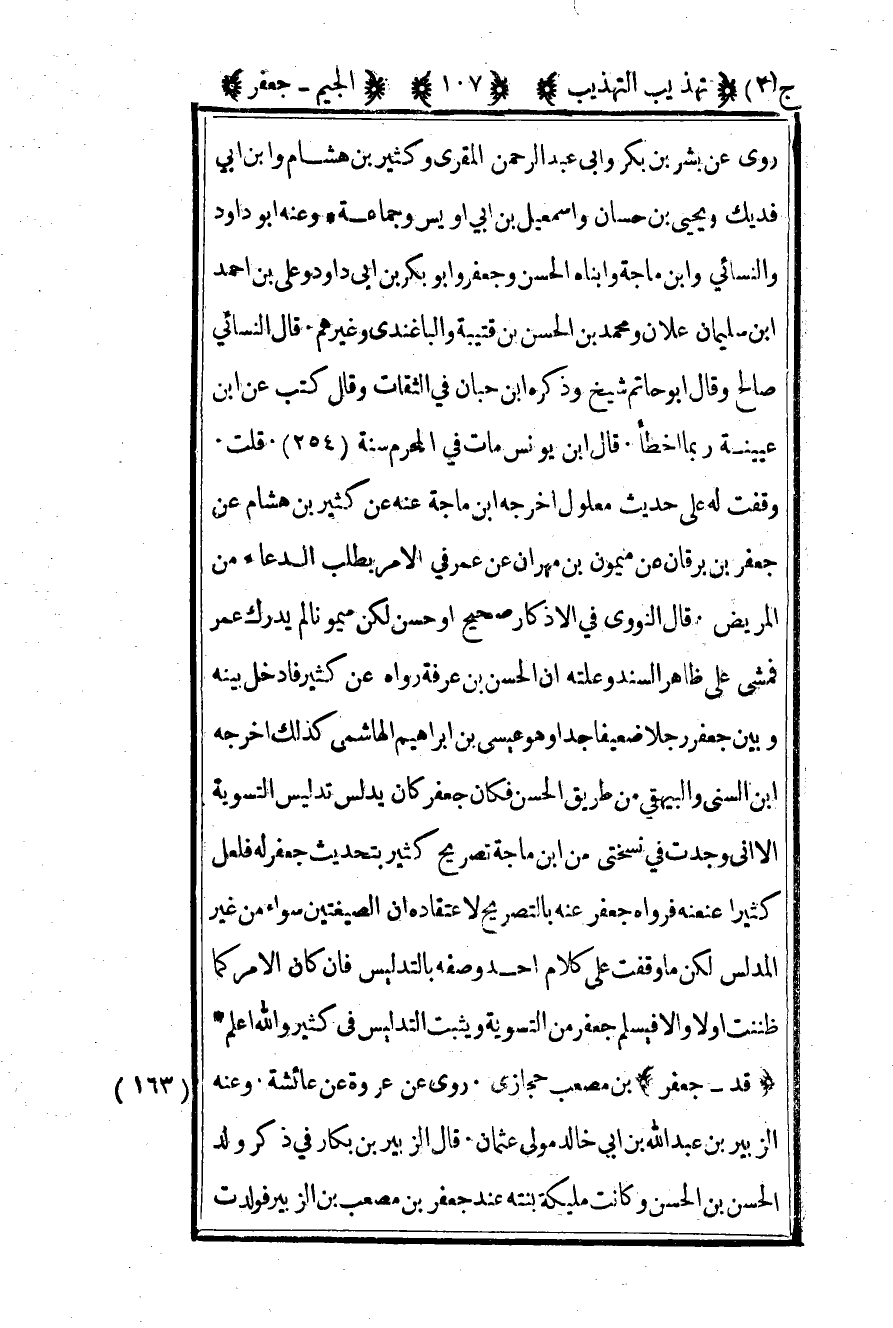 ج(٢) ﴿ تهذيب التهذيب ﴾ ﴿ ١٠٧ ﴾ ﴿ الجيم ـ جعفر ﴾
روى عن بشر بن بكر وابى عبدالرحمن المقرى وكثير بن هشام وابن ابي
فديك ويحيى بن حسان واسمعيل بن ابي اويس وجماعة * وعنه ابو داود
والنسائي وابن ماجة وابناه الحسن وجعفر وابو بكر بن ابى داود وعلى بن احمد
ابن سليمان علان ومحمد بن الحسن بن قتيبة والباغندى وغيرهم ٠ قال النسائي
صالح وقال ابو حاتم شيخ وذكره ابن حبان في الثقات وقال كتب عن ابن
عيينة ربما اخطأ ٠ قال ابن يونس مات في المحرم سنة (٢٥٤) ٠ قلت ٠
وقفت له على حديث معلول اخرجه ابن ماجة عنه عن كثير بن هشام عن
جعفر بن برقان عن ميمون بن مهران عن عمر في الامر بطلب الدعاء من
المريض ٠ قال النووى في الاذكار صحيح او حسن لكن ميمونا لم يدرك عمر
فمشى على ظاهر السند وعلته ان الحسن بن عرفة رواه عن كثير فادخل بينه
وبين جعفر رجلا ضعيفا جدا وهو عيسى بن ابراهيم الهاشمى كذلك اخرجه
ابن السنى والبيهقي من طريق الحسن فكان جعفر كان يدلس تدليس التسوية
الا انى وجدت في نسختى من ابن ماجة تصريح كثير بتحديث جعفر له فلعل
كثيرا عنعنه فرواه جعفر عنه بالتصريح لاعتقاده ان الصيغتين سواء من غير
المدلس لكن ما وقفت على كلام احد وصفه بالتدليس فان كان الامر كما
ظننت اولا والا فيسلم جعفر من التسوية ويثبت التدليس فى كثير والله اعلم *
﴿ قد ـ جعفر ﴾ بن مصعب حجازى ٠ روى عن عروة عن عائشة ٠ وعنه (١٦٣)
الزبير بن عبدالله بن ابي خالد مولى عثمان ٠ قال الزبير بن بكار في ذكر ولد
الحسن بن الحسن وكانت مليكة بنته عند جعفر بن مصعب بن الزبير فولدت